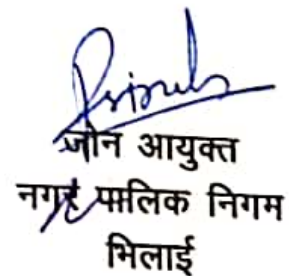 जोन आयुक्त
नगर पालिक निगम
भिलाई